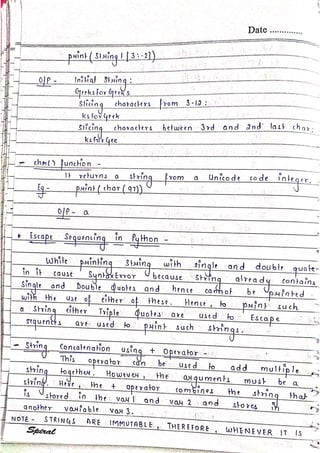 Date ..............
print (String1 [3:-2])
O/P - Initial String:
GeeksforGeeks
Slicing characters from 3-12:
ksforGeek
Slicing characters between 3rd and 2nd last char:
ksforGee
- chr() function -
It returns a string from a Unicode code integer.
Eg - print (char (97))
O/P - a
• Escape Sequencing in Python -
While printing String with single and double quote-
in it cause SyntaxError because String already contains
Single and Double Quotes and hence cannot be printed
with the use of either of these. Hence, to print such
a String either Triple Quotes are used to Escape
sequences are used to print such strings.
- String Concatenation using + Operator -
This operator can be used to add multiple
string together. However, the arguments must be a
string. Here, the + operator combines the string that
is stored in the var1 and var2 and stores in
another variable var3.
NOTE - STRINGS ARE IMMUTABLE, THEREFORE, WHENEVER IT IS
Spiral